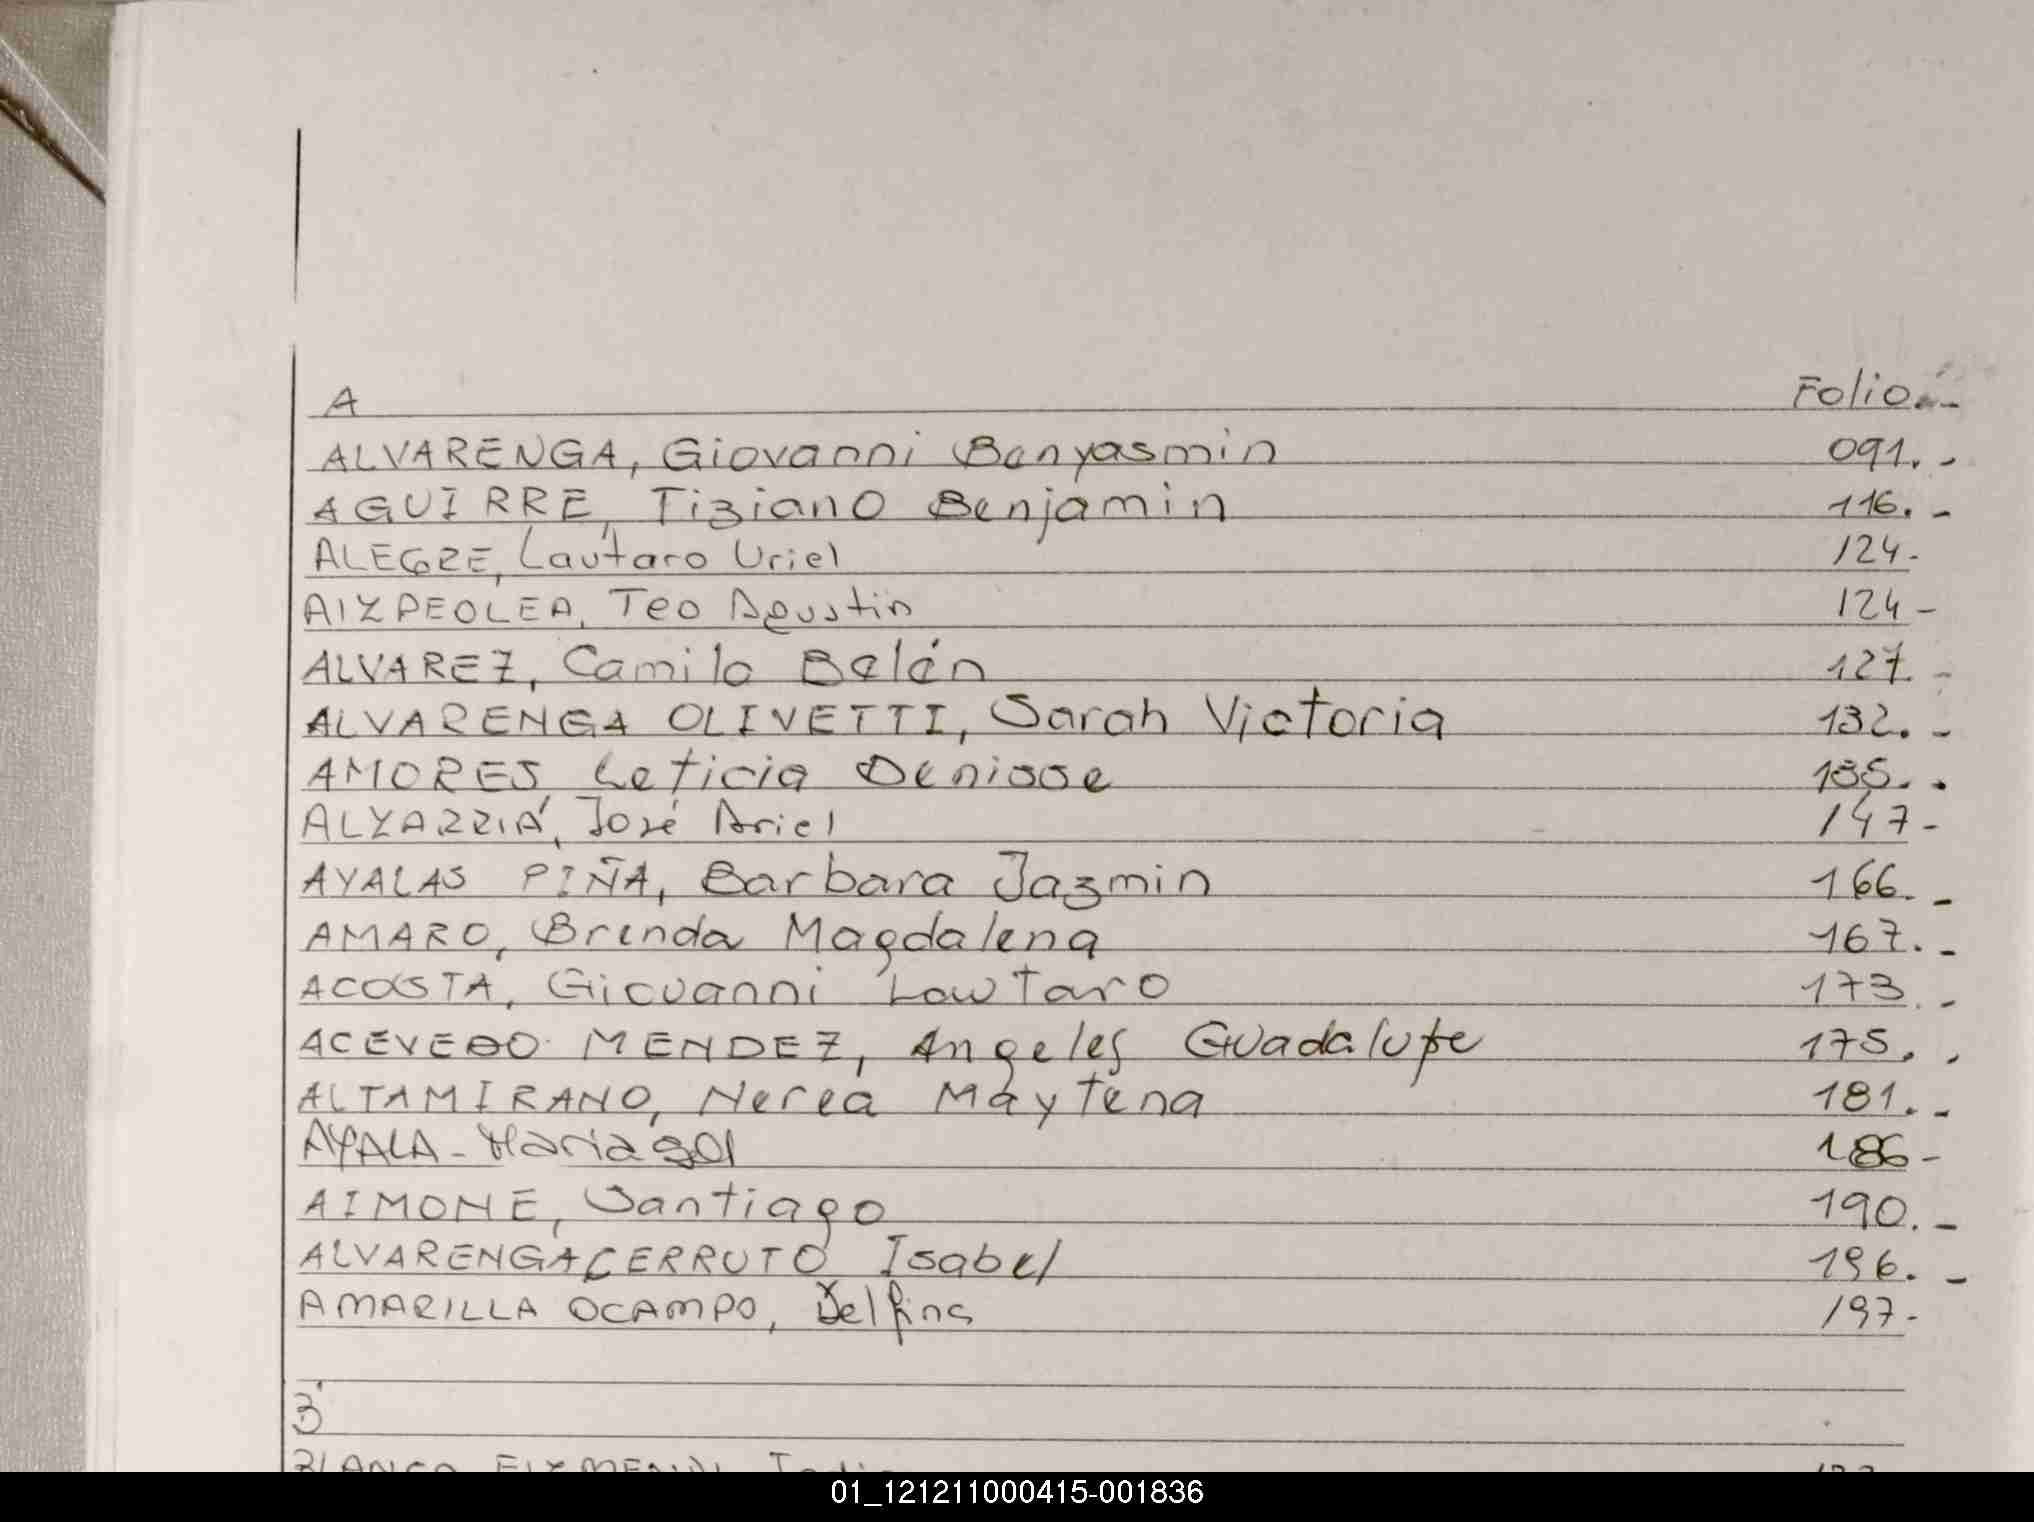 A Folio.-
ALVARENGA, Giovanni Benyasmin 091.-
AGUIRRE, Tiziano Benjamin 116.-
ALEGRE, Lautaro Uriel 124-
AIZPEOLEA, Teo Agustin 124-
ALVAREZ, Camila Belén 127.-
ALVARENGA OLIVETTI, Sarah Victoria 132.-
AMORES, Leticia Denisse 135..
ALZARRIÁ, José Ariel 147-
AYALAS PIÑA, Barbara Jazmin 166.-
AMARO, Brenda Magdalena 167.-
ACOSTA, Giovanni Lautaro 173.-
ACEVEDO MENDEZ, Angeles Guadalupe 175.-
ALTAMIRANO, Nerea Maytena 181.-
AYALA - Maria sol 186-
AIMONE, Santiago 190.-
ALVARENGA CERRUTO Isabel 196.-
AMARILLA OCAMPO, Delfina 197-
B
BLANCO
01_121211000415-001836